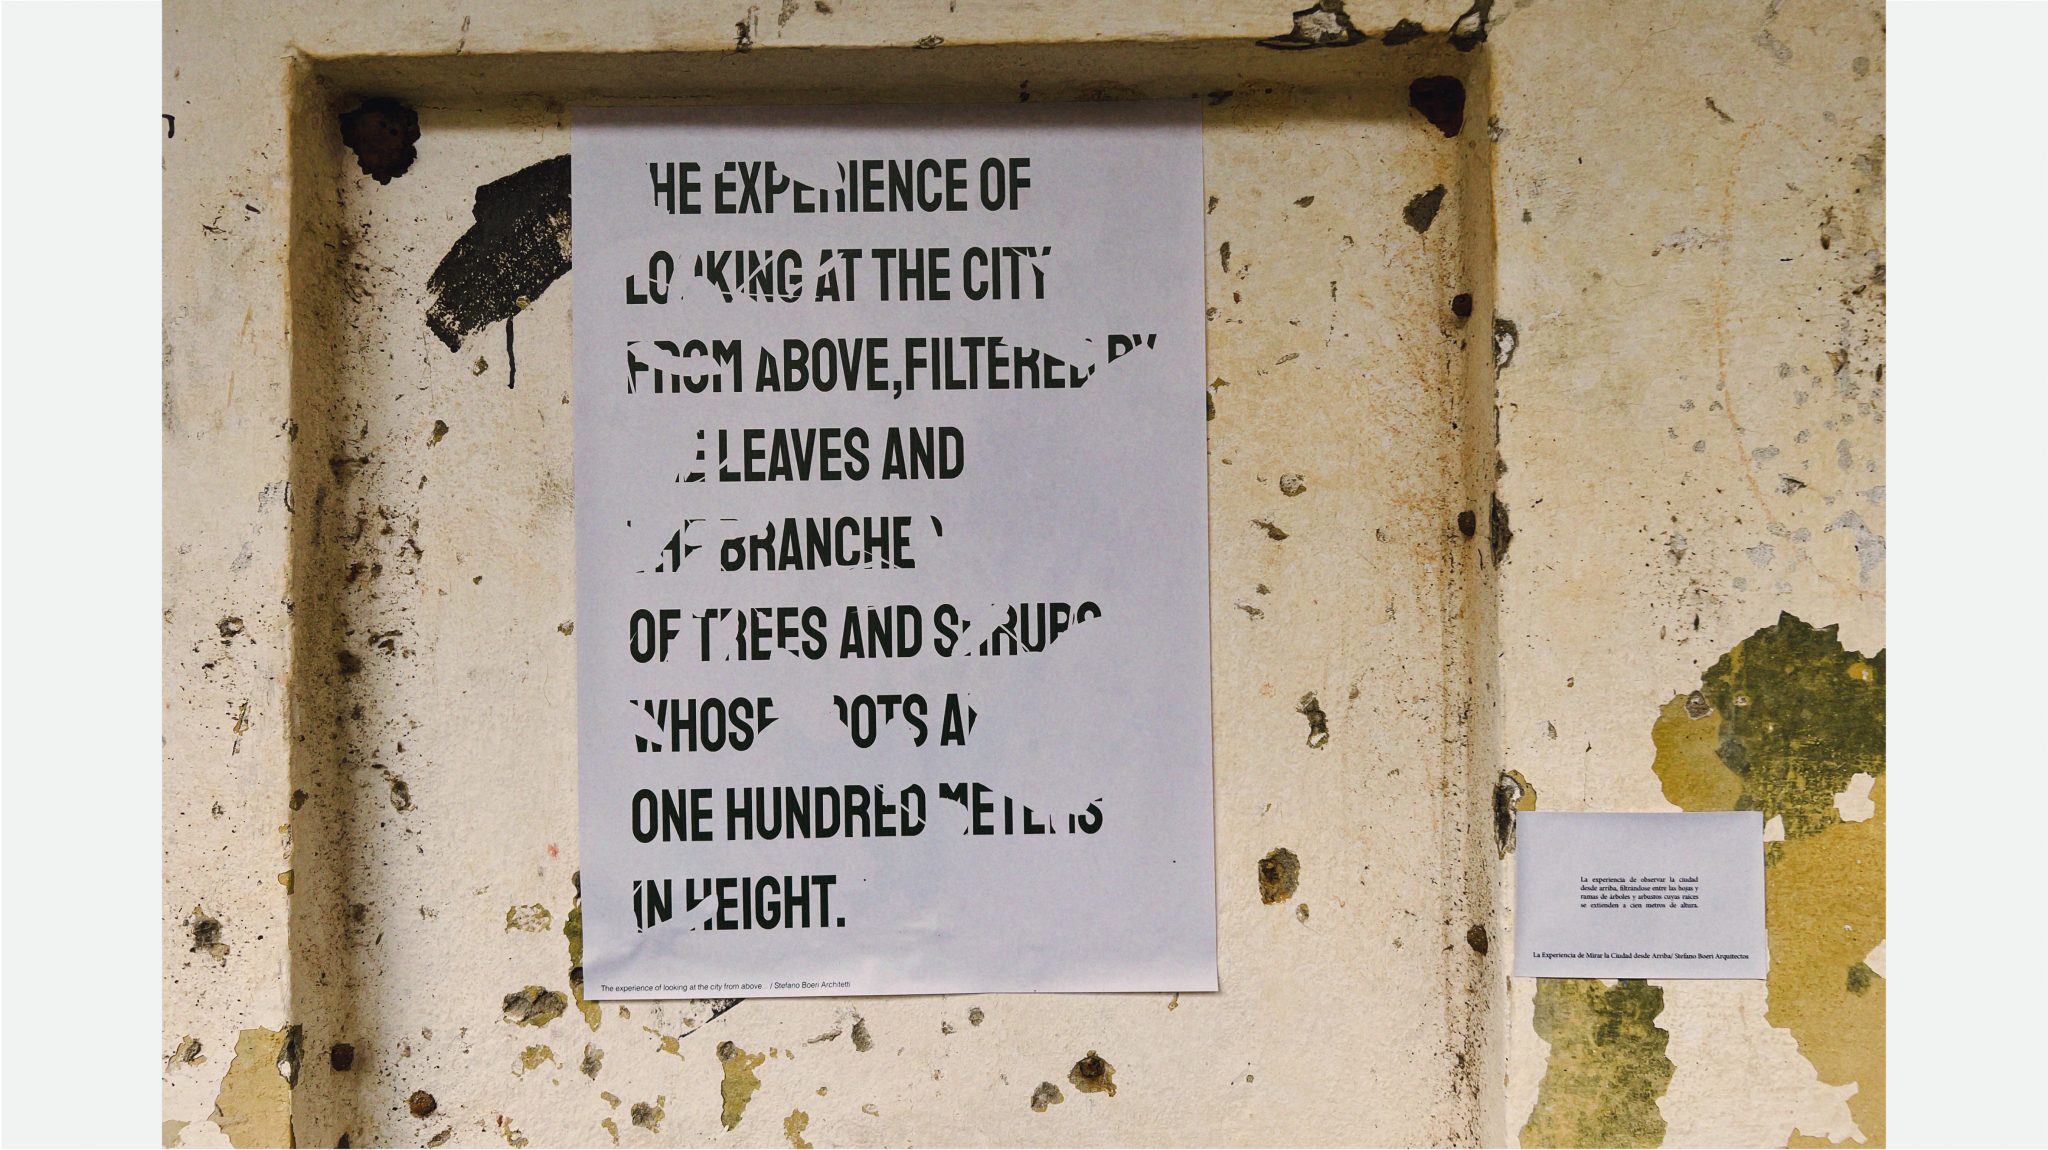 THE EXPERIENCE OF
LOOKING AT THE CITY
FROM ABOVE,FILTERED BY
THE LEAVES AND
THE BRANCHES
OF TREES AND SHRUBS
WHOSE ROOTS A
ONE HUNDRED METERS
IN HEIGHT.
The experience of looking at the city from above... / Stefano Boeri Architetti
La experiencia de observar la ciudad
desde arriba, filtrándose entre las hojas y
ramas de árboles y arbustos cuyas raíces
se extienden a cien metros de altura.
La Experiencia de Mirar la Ciudad desde Arriba/ Stefano Boeri Arquitectos